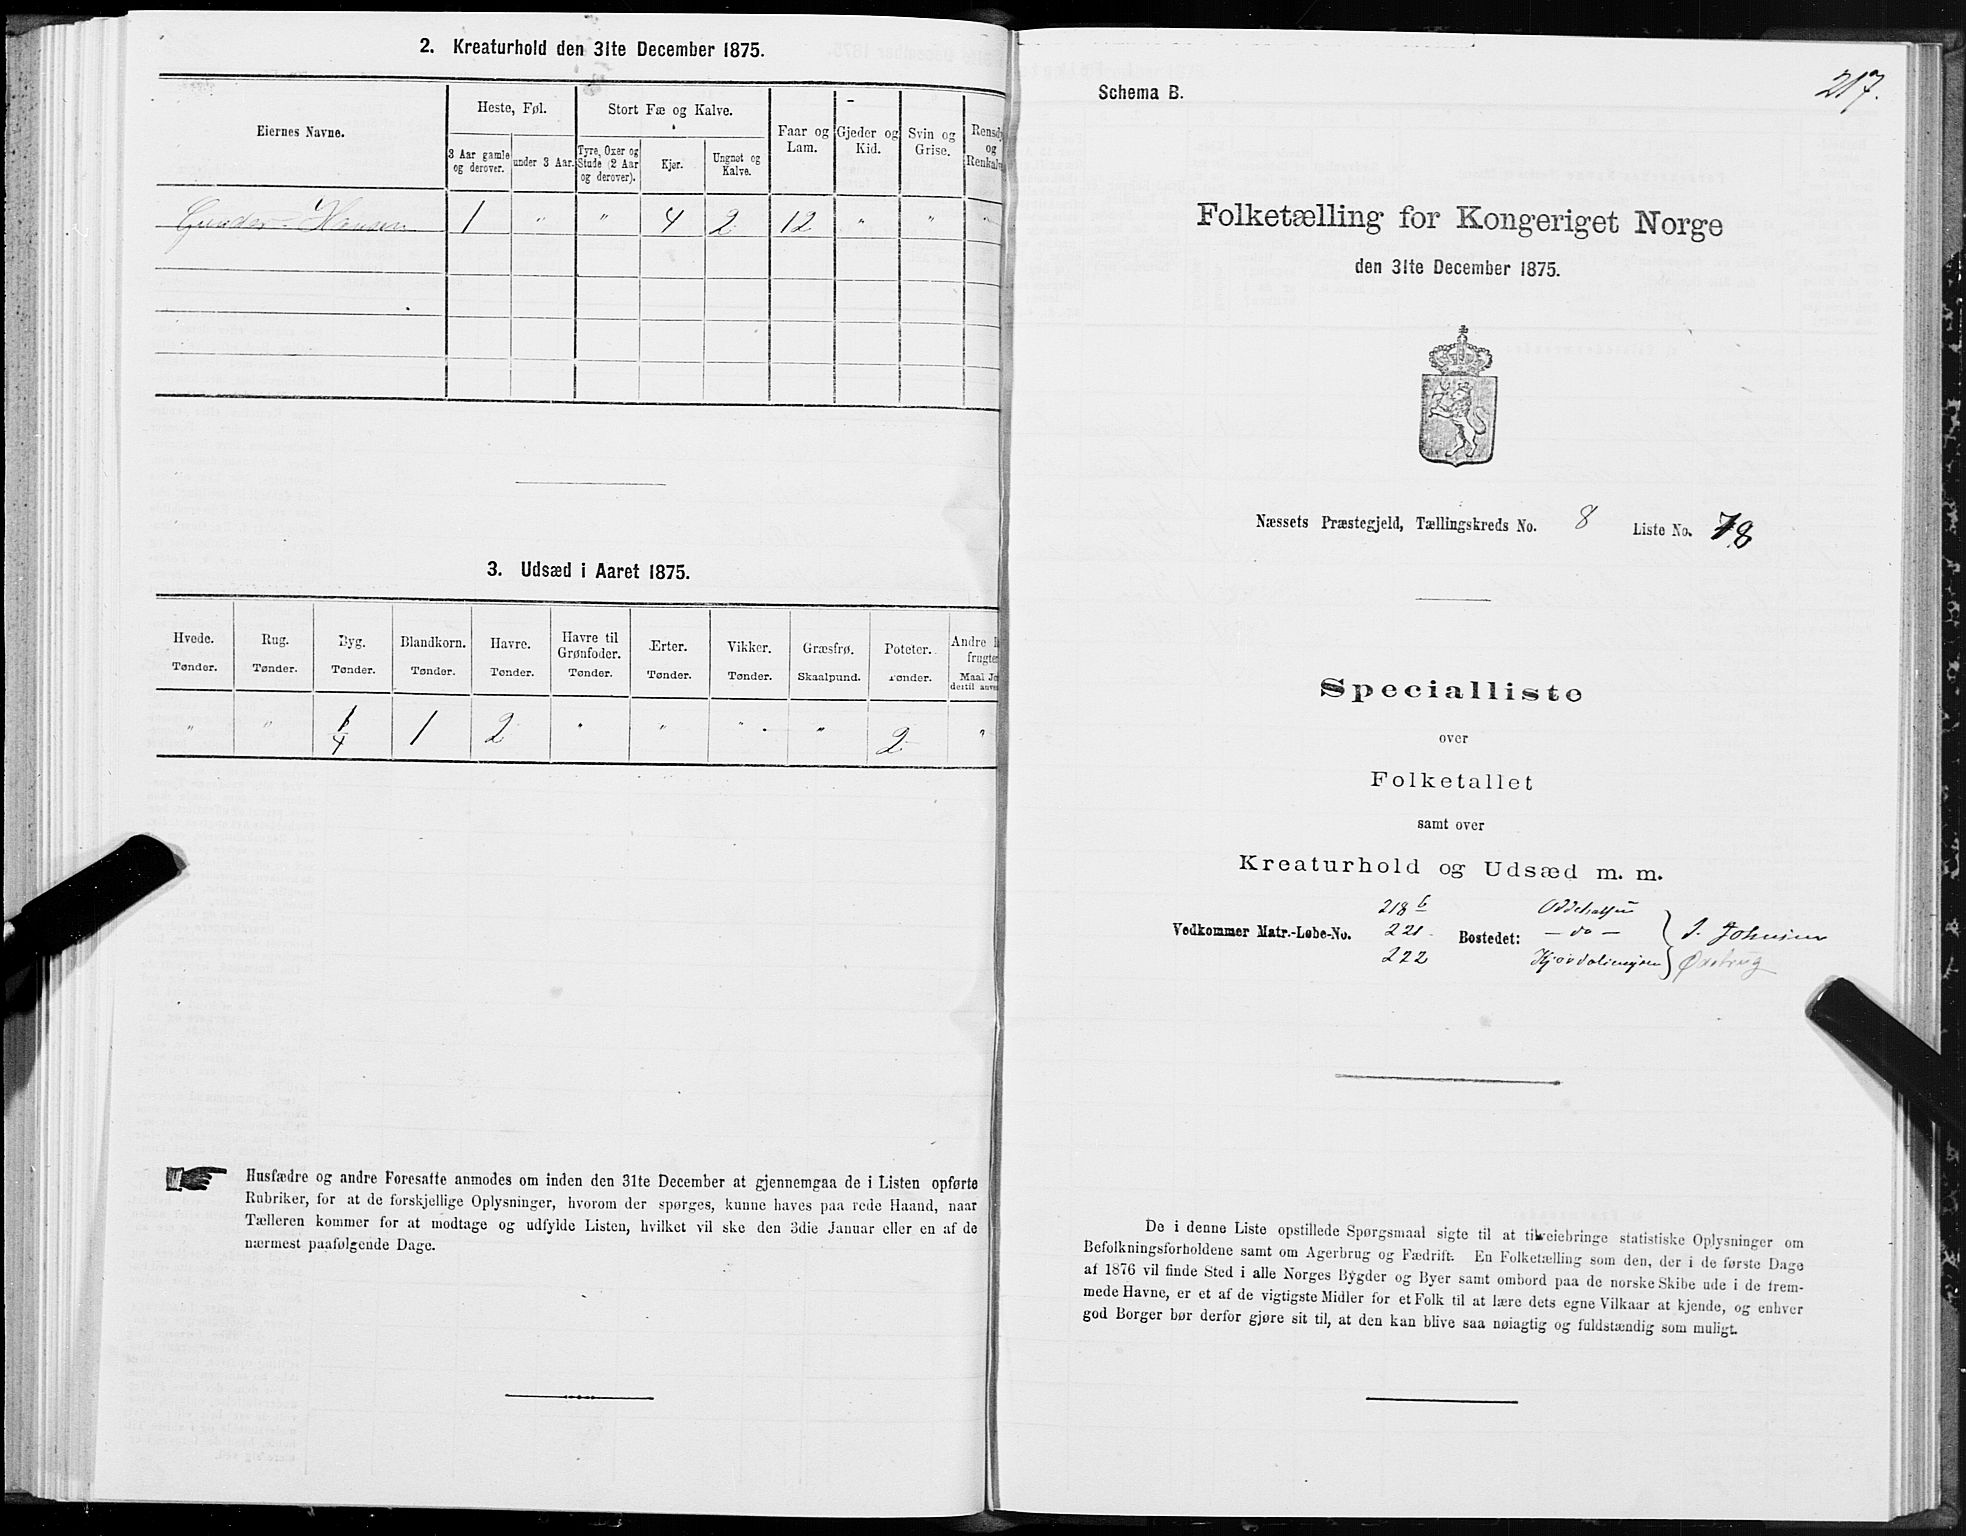 2. Kreaturhold den 31te December 1875.
Eiernes Navne.
Heste, Føl.
Stort Fæ og Kalve.
Faar og Lam.
Gjeder og Kid.
Svin og Grise.
Rensdy
og
Renkalve
3 Aar gamle og derover.
under 3 Aar.
Tyre, Oxer og Stude (2 Aar og derover).
Kjør.
Ungnøt og Kalve.
Gunder Hansen 1 " " 4 2 12 " " "
3. Udsæd i Aaret 1875.
Hvede. Rug. Byg. Blandkorn. Havre. Havre til Grønfoder. Erter. Vikker. Græsfrø. Poteter. Andre
frugte
Tønder. Tønder. Tønder. Tønder. Tønder. Tønder. Tønder. Tønder. Skaalpund. Tønder. Maal Jo
dertil anve
" " 1/4 1 2 " " " " 2 "
Husfædre og andre Foresatte anmodes om inden den 31te December at gjennemgaa de i Listen opførte
Rubriker, for at de forskjellige Oplysninger, hvorom der spørges, kunne haves paa rede Haand, naar
Tælleren kommer for at modtage og udfylde Listen, hvilket vil ske den 3die Januar eller en af de
nærmest paafølgende Dage.
217.
Schema B.
Folketælling for Kongeriget Norge
den 31te December 1875.
Næssets Præstegjeld, Tællingskreds No. 8 Liste No. 78
Specialliste
over
Folketallet
samt over
Kreaturhold og Udsæd m. m.
218 b
Vedkommer Matr.-Løbe-No. 221 Bostedet: — do — J. Johnsen
222
De i denne Liste opstillede Spørgsmaal sigte til at tilveiebringe statistiske Oplysninger om
Befolkningsforholdene samt om Agerbrug og Fædrift. En Folketælling som den, der i de første Dage
af 1876 vil finde Sted i alle Norges Bygder og Byer samt ombord paa de norske Skibe ude i de frem-
mede Havne, er et af de vigtigste Midler for et Folk til at lære dets egne Vilkaar at kjende, og enhver
god Borger bør derfor gjøre sit til, at den kan blive saa nøiagtig og fuldstændig som muligt.